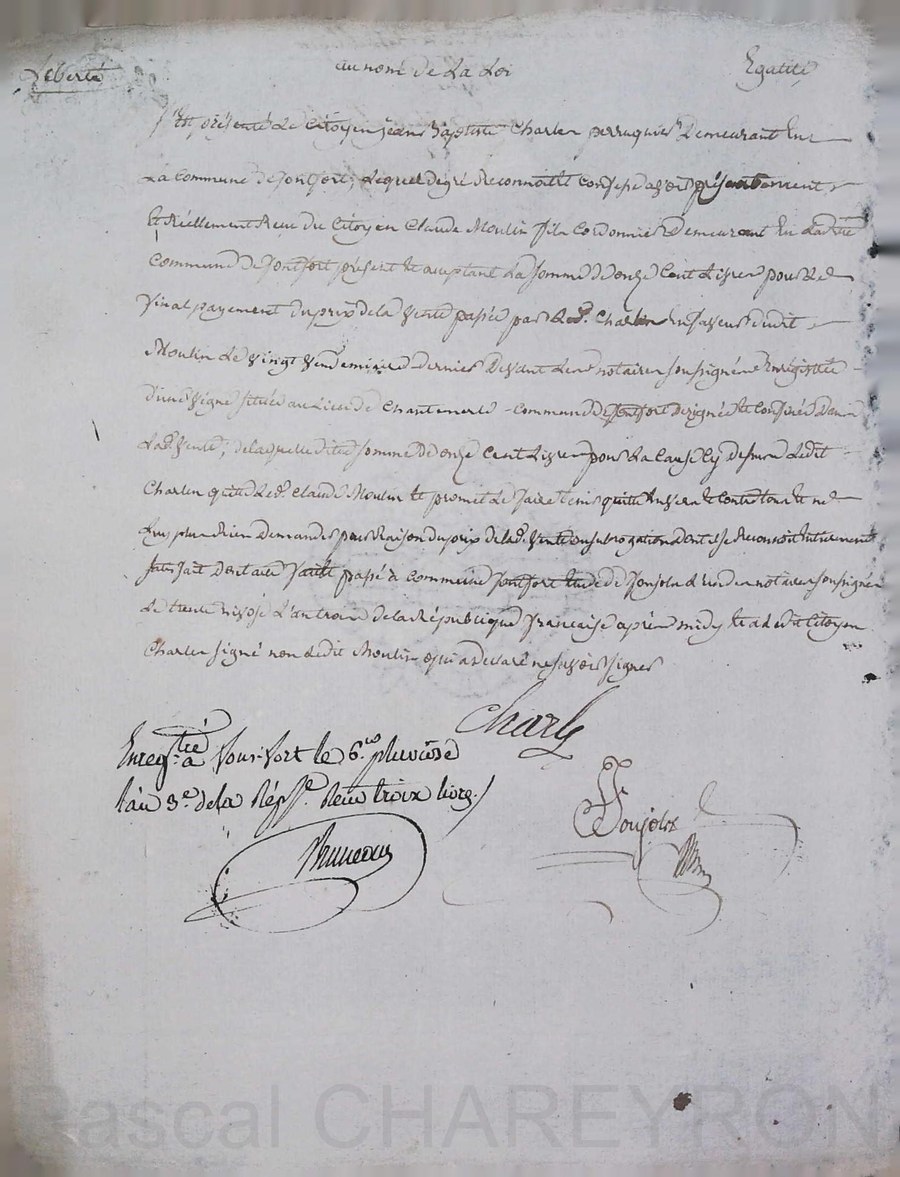 Liberté au nom de La Loi Egalité
Est présenté Le Citoyen jean Baptiste Charles perruquier Demeurant En
La Commune de Fonfort, Lequel de gré Reconnoit et Confesse avoir présentement
Et Réellement Reçu du Citoyen Claude Moulin fils Cordonnier Demeurant En Ladite
Commune de Fontfort présent et acceptant La somme de onze Cent Livres pour Le
final payement du prix de la vente passée par Led. Charles En faveur dudit
Moulin Le vingt vendemiaire Dernier Devant Les notaires soussignés Enregistrée
D'une vigne située au Lieu de Chantemerle Commune de fontfort Désignée et Confinée Dans
Lad. vente, de laquelle dite somme de onze Cent Livres pour La Cause Cy dessus Ledit
Charles quitte Led. Claude Moulin et promet Le faire tenir quitte Envers et Contre tous et ne
Luy plus Rien Demander pour Raison du prix de lad. vente Dont il se Reconnoit Entierement
satisfait Dont acte fait et passé à Commune fontfort Etude de Ponjolx L'un des notaires soussignés
Le trente nivose L'an trois de la République française après midy et a Ledit Citoyen
Charles signé non Ledit Moulin qui a declaré ne savoir signer
Charles
Enregistré a Fonfort le 6 pluviose
l'an 3e de la Répe. Reçu troix livres
Ponjolx